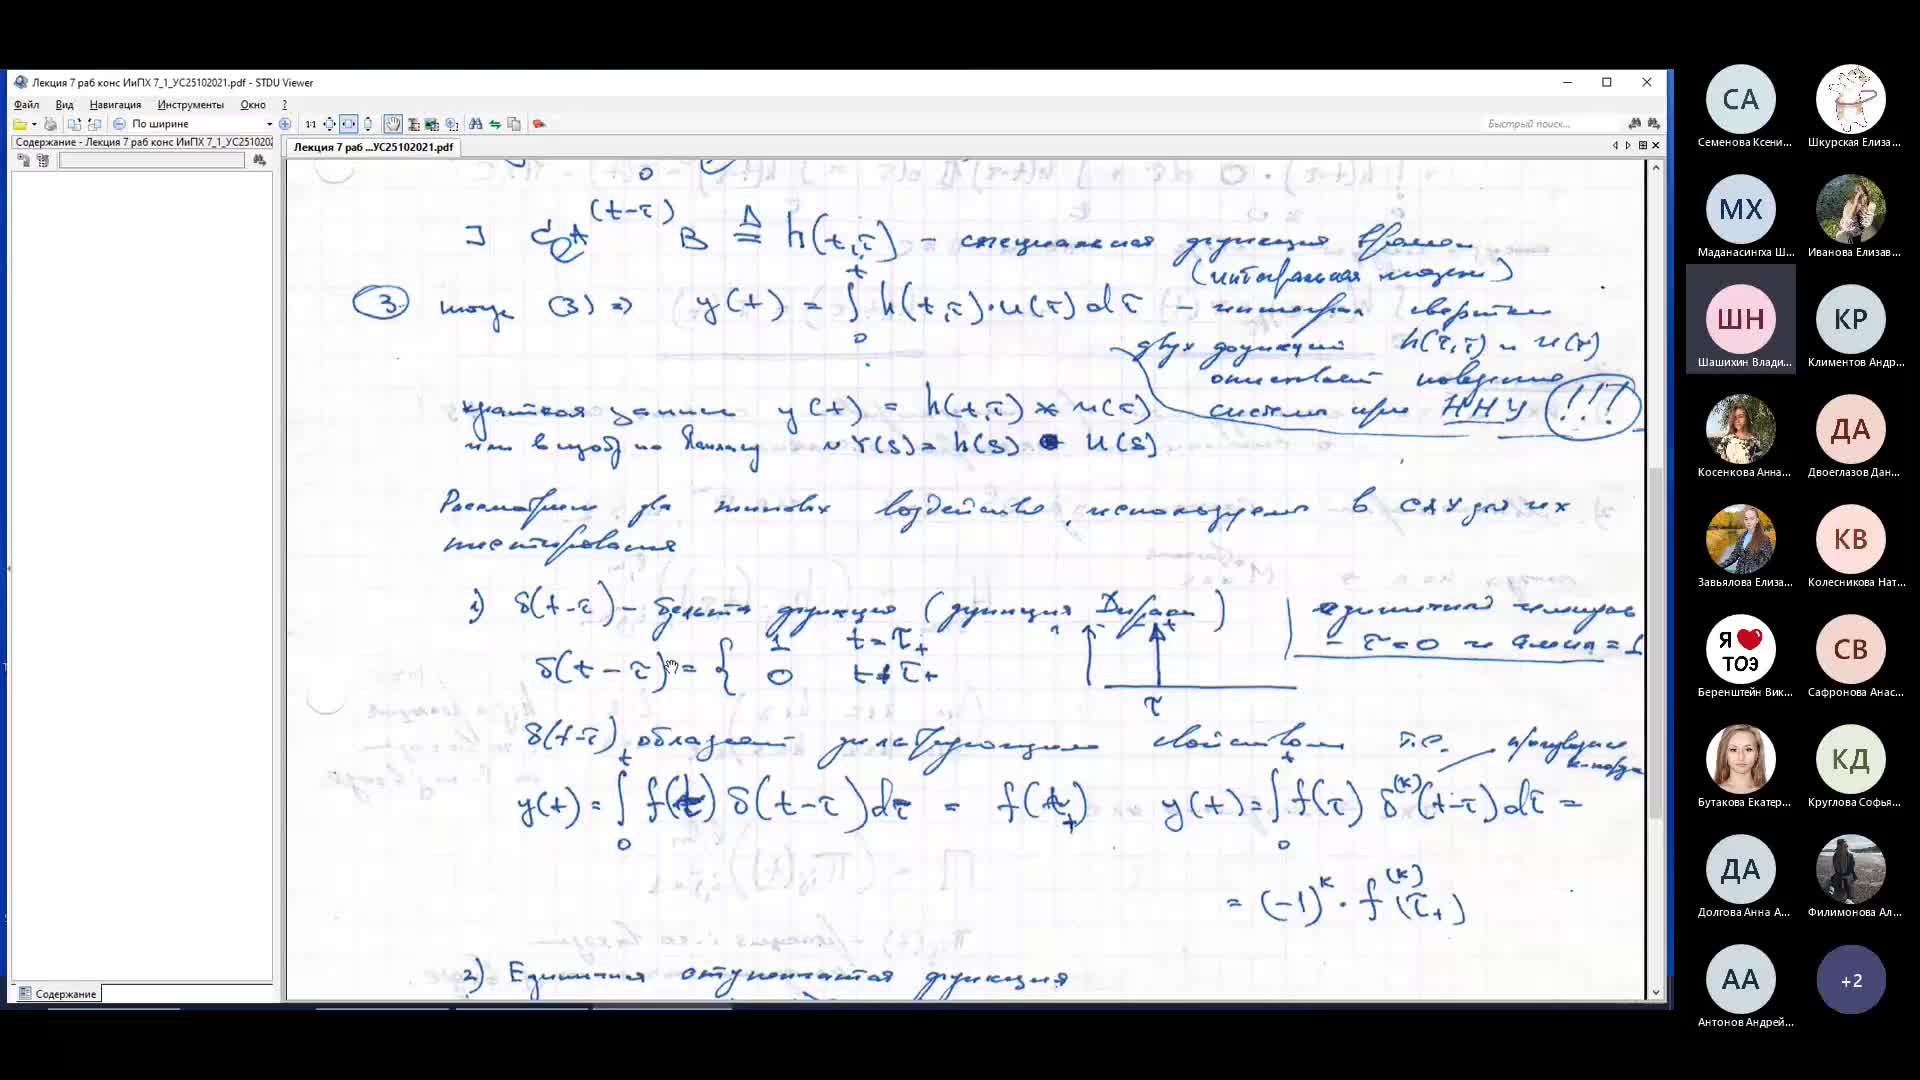 Лекция 7 раб конс ИиПХ 7_1_УС25102021.pdf - STDU Viewer
Файл Вид Навигация Инструменты Окно ?
По ширине
1:1
Быстрый поиск...
Содержание - Лекция 7 раб конс ИиПХ 7_1_УС251020
Лекция 7 раб ...УС25102021.pdf
∃ C e^{A(t-τ)} B ≜ h(t,τ) - специальная функция времени
③ тогда (3) ⇒ y(t) = ∫₀ᵗ h(t,τ)·u(τ) dτ - интеграл свертки
двух функций h(t,τ) и u(τ)
описывает поведение
системы при ННУ (!!!)
краткая запись y(t) = h(t,τ) * u(τ)
или в изобр по Лапласу Y(S) = h(S) · U(S)
Рассмотрим два типовых воздействия, используемых в САУ для их
тестирования
1) δ(t-τ) - дельта функция (функция Дирака)
единичный импульс
- τ=0 и =1
δ(t-τ) = { 1 t = τ₊
0 t ≠ τ₊
τ
δ(t-τ) обладает фильтрующим свойством т.е.
y(t) = ∫₀ᵗ f(t) δ(t-τ) dτ = f(t₊) y(t) = ∫₀ᵗ f(τ) δ^{(k)}(t-τ) dτ =
= (-1)^k · f^{(k)}(τ₊)
2) Единичная ступенчатая функция
Содержание
СА
Семенова Ксени...
Шкурская Елиза...
МХ
Маданасингха Ш...
Иванова Елизав...
ШН
Шашихин Влади...
КР
Климентов Андр...
Косенкова Анна...
ДА
Двоеглазов Дан...
Завьялова Елиза...
КВ
Колесникова Нат...
Я ТОЭ
Беренштейн Вик...
СВ
Сафронова Анас...
Бутакова Екатер...
КД
Круглова Софья...
ДА
Долгова Анна А...
Филимонова Ал...
АА
Антонов Андрей...
+2